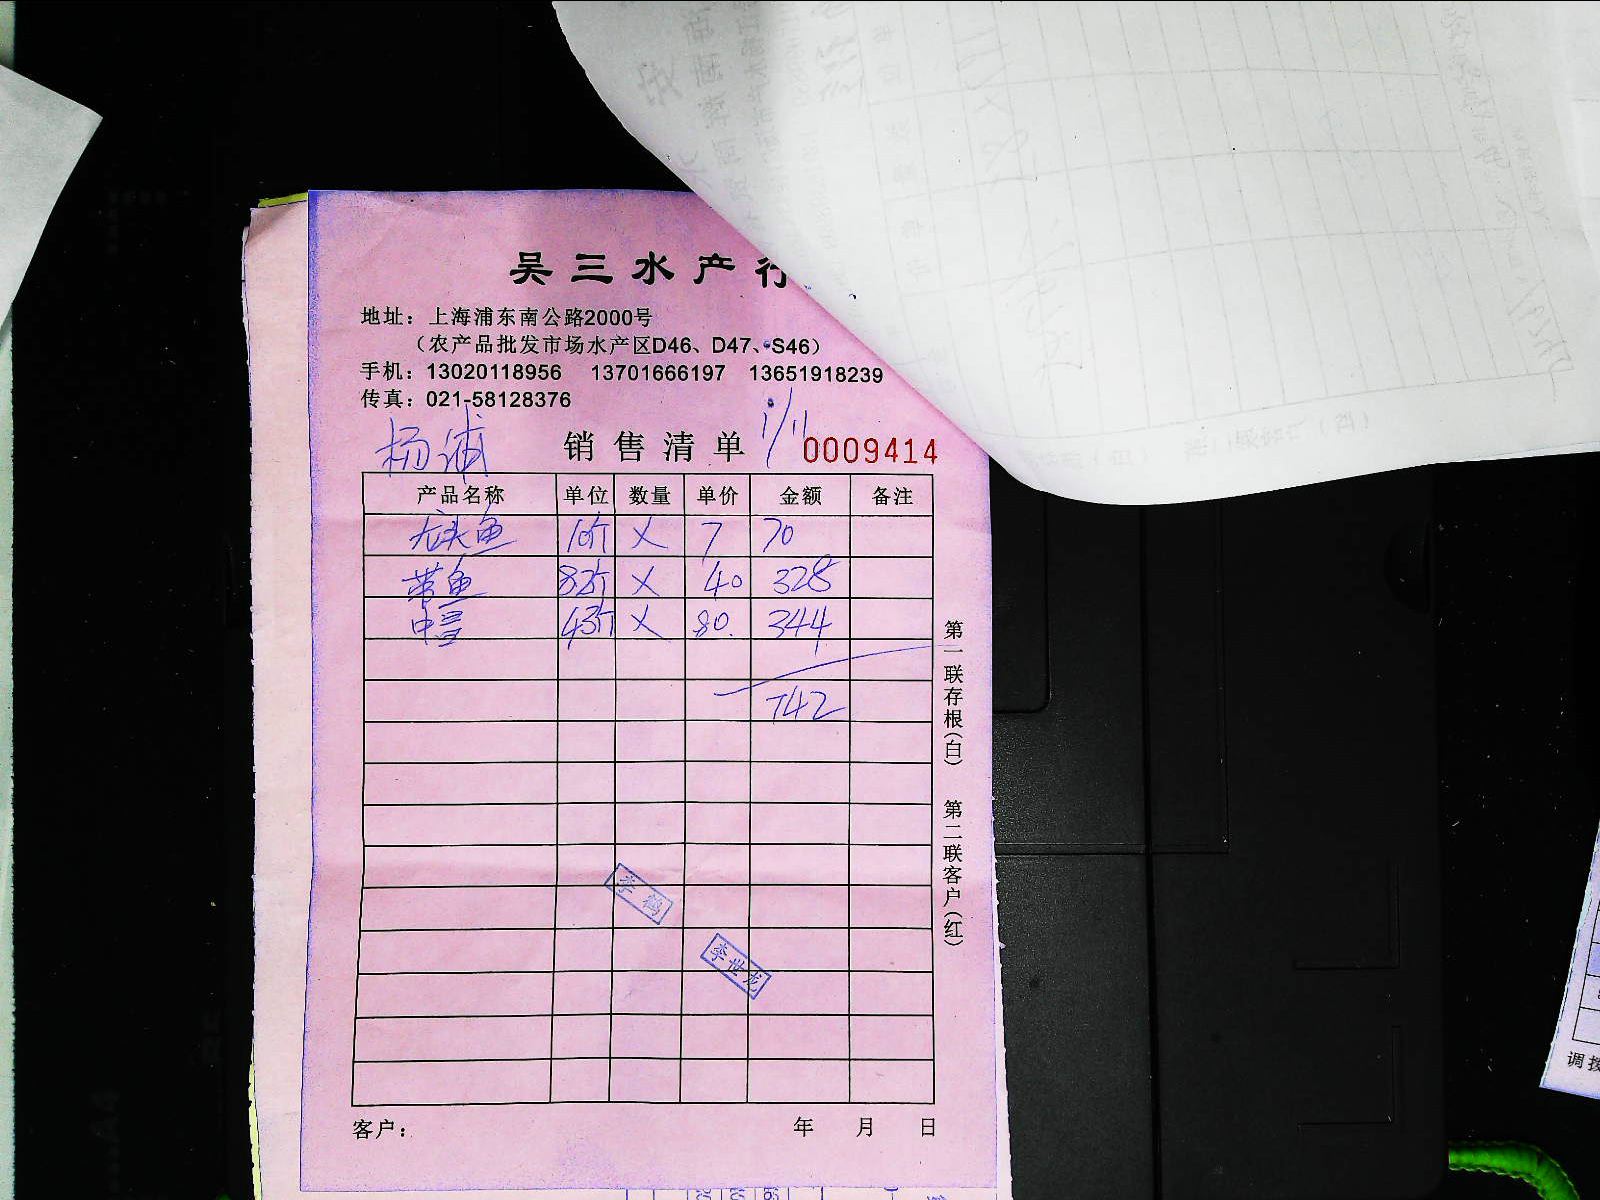 吴三水产行
地址：上海浦东南公路2000号
（农产品批发市场水产区D46、D47、S46）
手机：13020118956 13701666197 13651918239
传真：021-58128376
杨浦 销售清单 1/11 0009414
产品名称 单位 数量 单价 金额 备注
10斤 × 7 70
带鱼 82斤 × 40 328
中号 43斤 × 80. 344
742
第一联存根（白） 第二联客户（红）
李鹤
李世龙
客户： 年 月 日